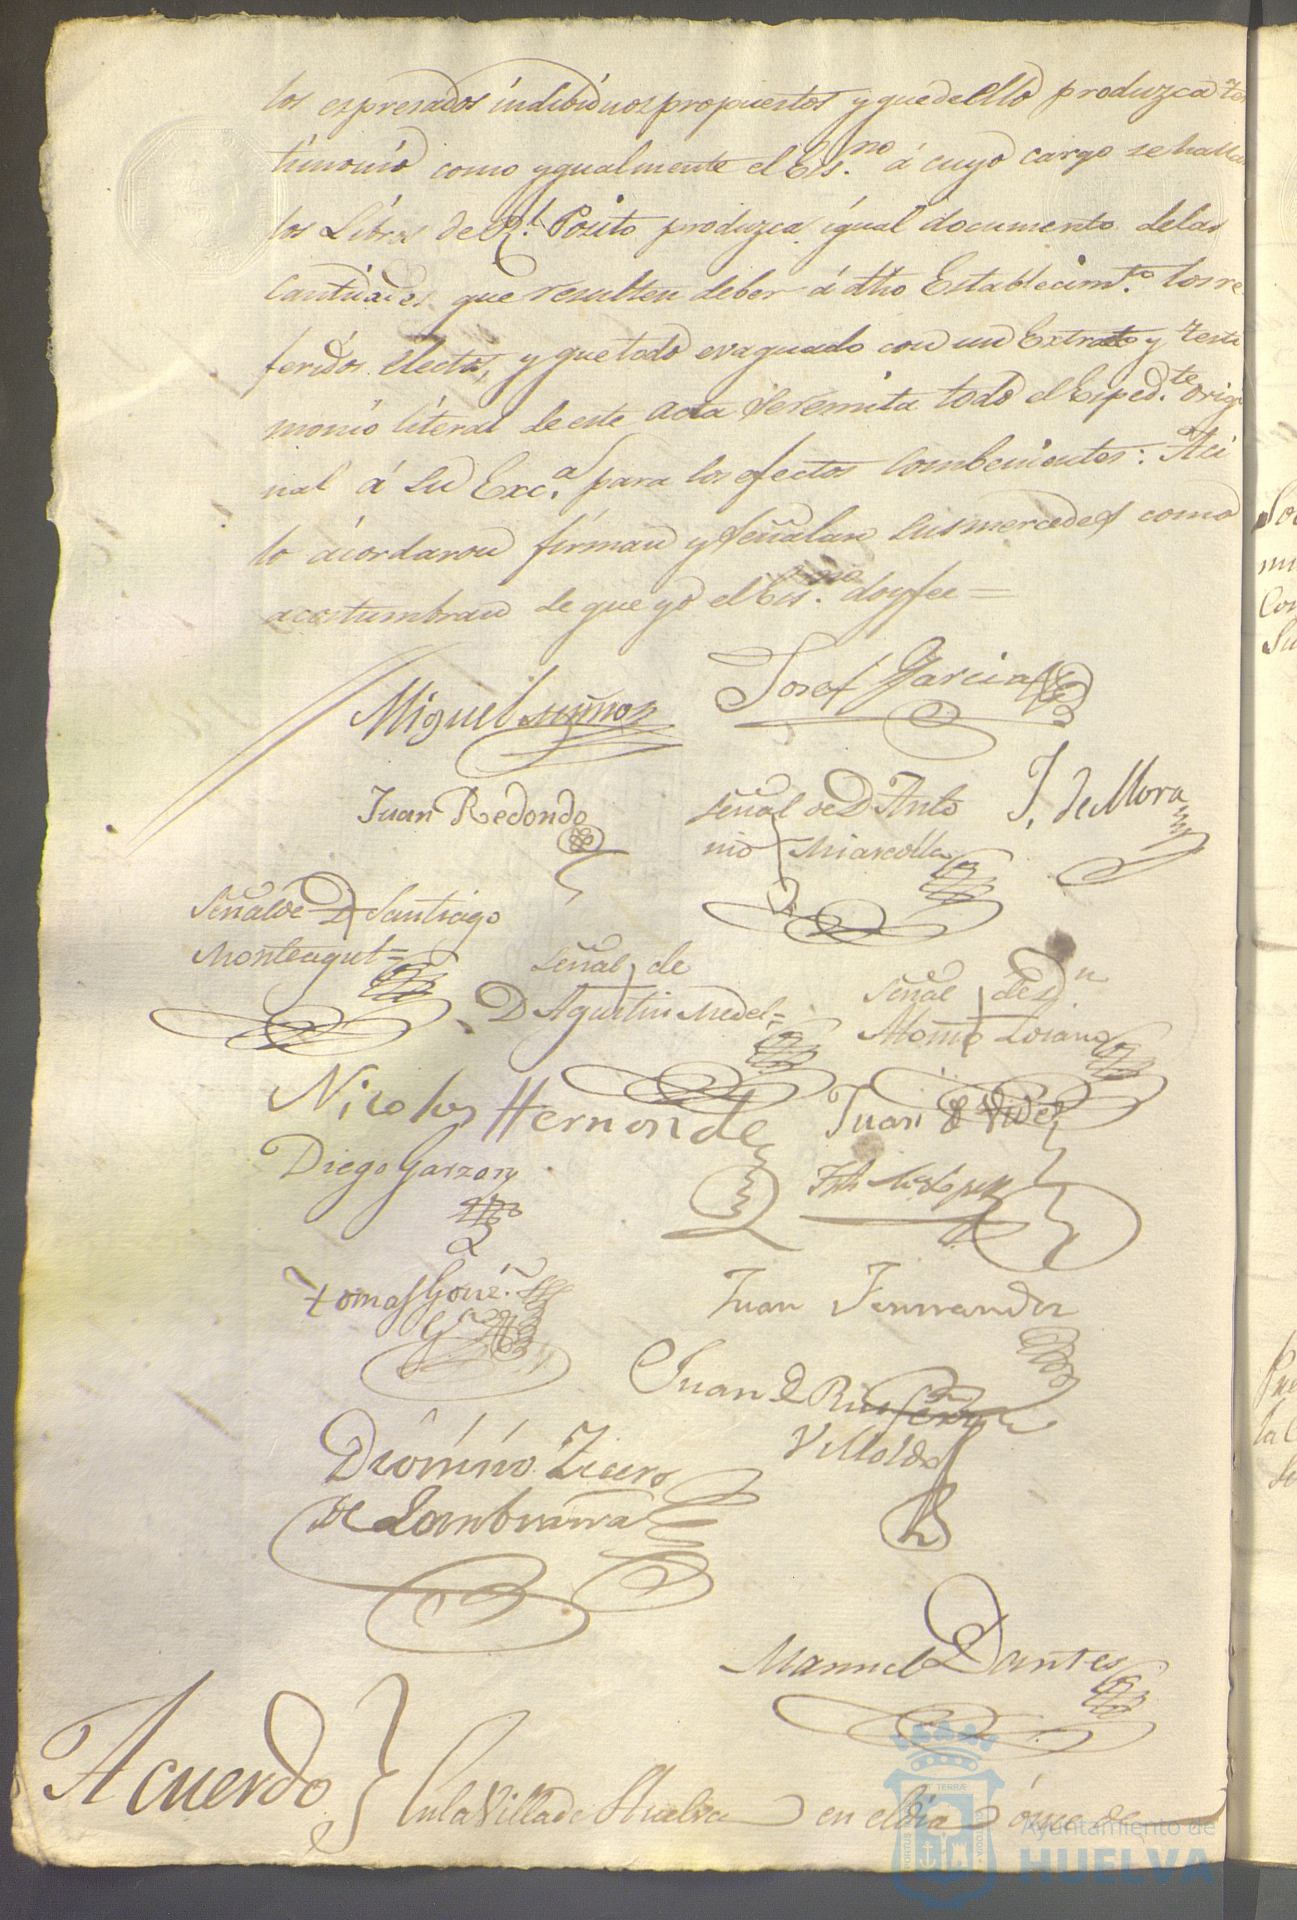 los espresados indibiduos propuestos y que de ello produzca tes
timonio como ygualmente el Es.no á cuyo cargo se halla
los Libros de R.l Posito produzca igual documento de las
Cantidades que resulten deber á dho Establecim.to los re
feridos electos, y que todo evaquado con un Extrato y testi
monio literal de este acta se remita todo el Exped.te origi
nal á Su Exc.a para los efectos combenientes: Asi
lo ácordaron firman y señalan sus mercedes como
acostumbran de que yo el Es.no doy fee =
Miguel Muñoz
Josef Garcia
Juan Redondo
señal de D Anto
nio Miarcolla
J. de Mora
Señal de D Santiago
Monteagut=
Señal de
D Agustin Medel=
Señal de D.n
Alonso Loiano
Nicolas Hernonde
Juan de Videl
Diego Garzon
Tomas Gone.
Juan Fernandez
Juan de
Villoldo
Dionino
de Lambarra
Manuel Dantes
Acuerdo
En la Villa de Huelva en el dia once de
TERRÆ
Ayuntamiento de
HUELVA